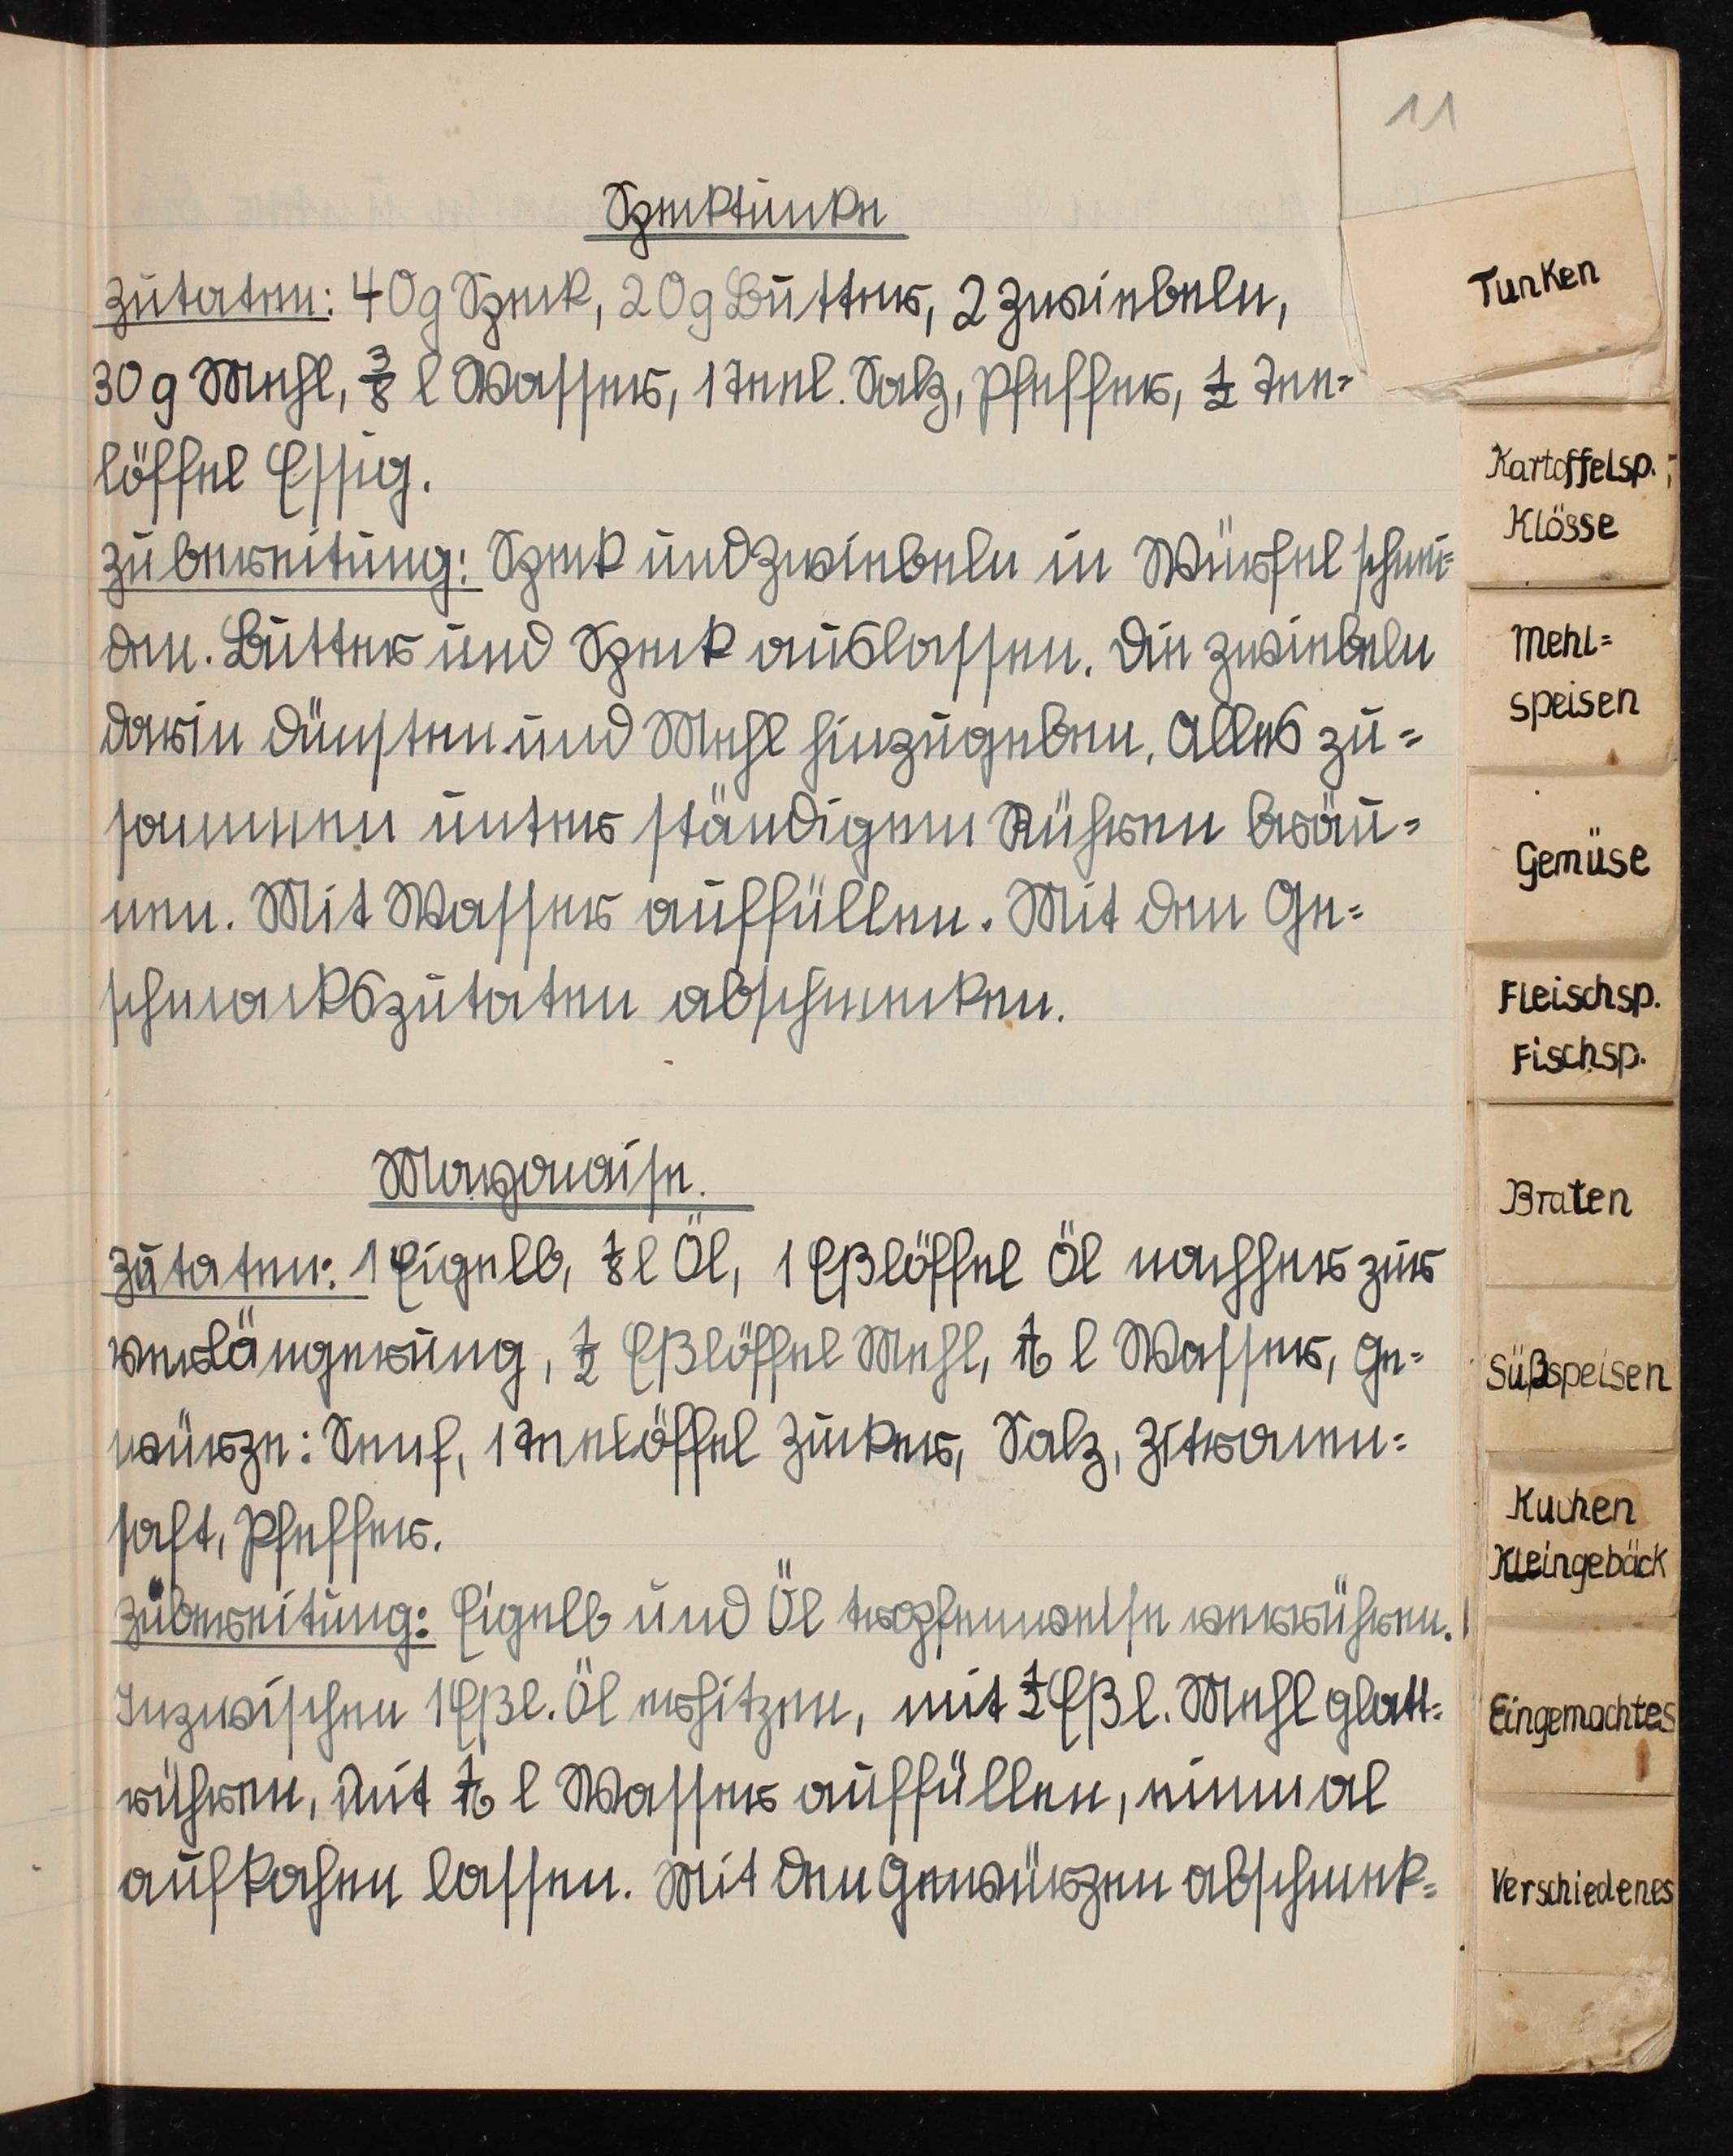 11
Specktunke
Zutaten: 40g Speck, 20g Butter, 2 Zwiebeln,
30 g Mehl, 3/8 l Wasser, 1 Teel. Salz, Pfeffer, 1/2 Tee=
löffel Essig.
Zubereitung: Speck und Zwiebeln in Würfel schnei=
den. Butter und Speck auslassen. Die Zwiebeln
darin dünsten und Mehl hinzugeben. Alles zu=
sammen unter ständigem Rühren bräu=
nen. Mit Wasser auffüllen. Mit den Ge=
schmackszutaten abschmecken.
Mayonaise.
Zutaten: 1 Eigelb, 1/8 l Öl, 1 Eßlöffel Öl nachher zur
Verlängerung, 1/2 Eßlöffel Mehl, 1/16 l Wasser, Ge=
würze: Senf, 1 Teelöffel Zucker, Salz, Zitronen=
saft, Pfeffer.
Zubereitung: Eigelb und Öl tropfenweise verrühren.
Inzwischen 1 Eßl. Öl erhitzen, mit 1/2 Eßl. Mehl glatt=
rühren, mit 1/16 l Wasser auffüllen, einmal
aufkochen lassen. Mit den Gewürzen abschmek=
Tunken
Kartoffelsp.,
Klösse
Mehl=
speisen
Gemüse
Fleischsp.
Fischsp.
Braten
Süßspeisen
Kuchen
Kleingebäck
Eingemachtes
Verschiedenes